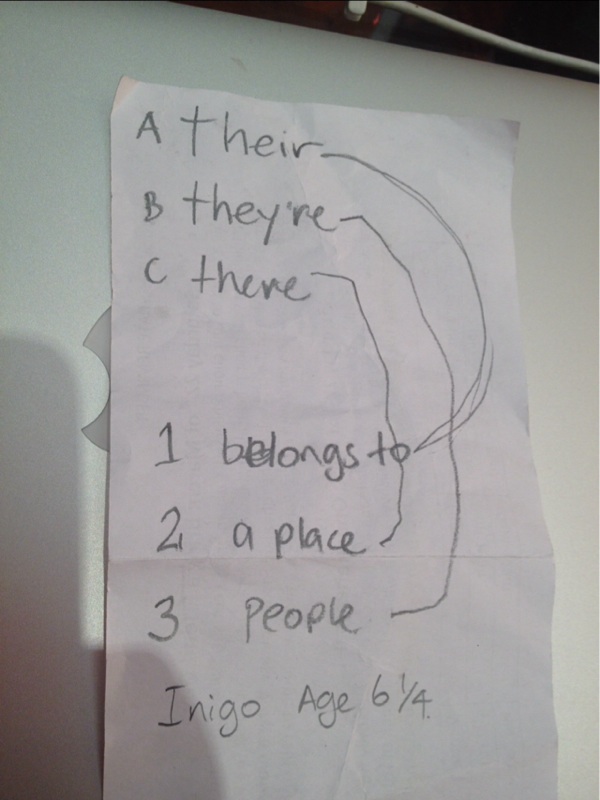 A their
B they're
C there
1 belongs to
2 a place
3 people
Inigo Age 6 1/4